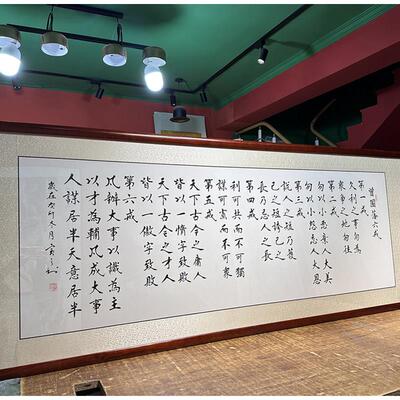 曾國藩六戒
第一戒
久利之事勿為
衆争之地勿往
第二戒
勿以小惡棄人大美
勿以小怨忘人大恩
第三戒
説人之短乃護
己之短誇己之
長乃忌人之長
第四戒
利可共而不可獨
謀可寡而不可衆
第五戒
天下古今之庸人
皆以一惰字致敗
天下古今之才人
皆以一傲字致敗
第六戒
凡辦大事以識為主
以才為輔凡成大事
人謀居半天意居半
歲在癸卯冬月